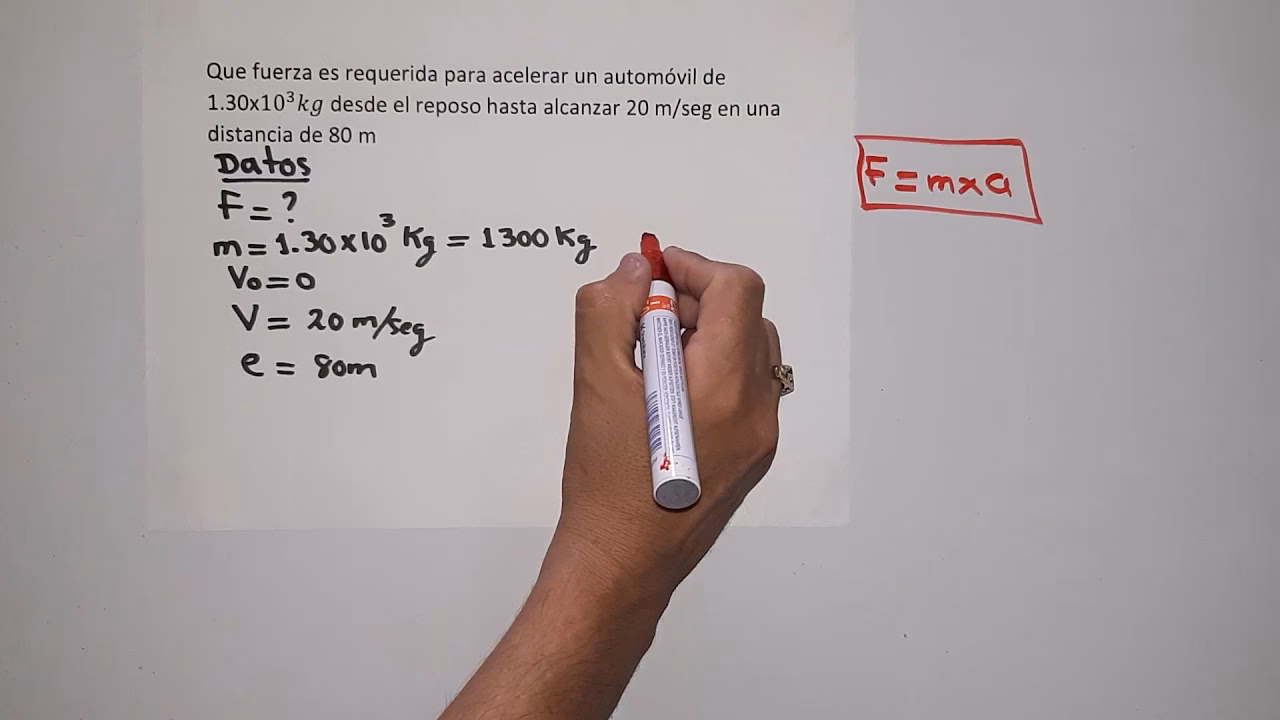 Que fuerza es requerida para acelerar un automóvil de
1.30x10³kg desde el reposo hasta alcanzar 20 m/seg en una
distancia de 80 m
Datos
F = ?
m = 1.30x10³ Kg = 1300 Kg
Vo = 0
V = 20 m/seg
e = 80m
F = m x a